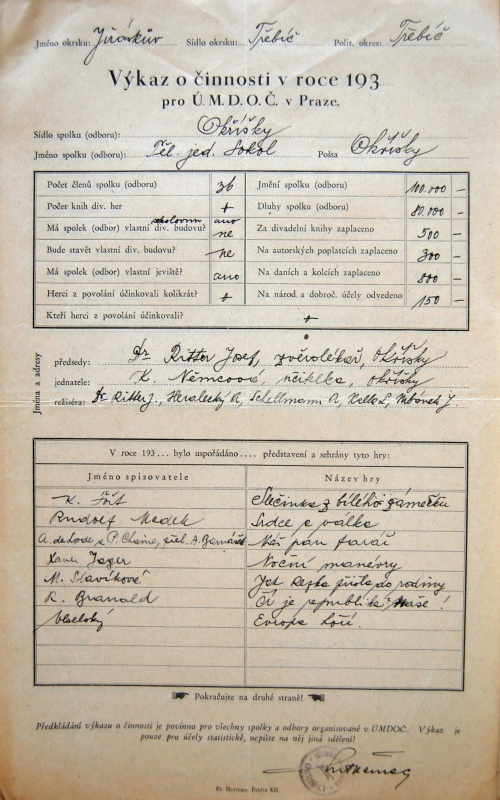 Jméno okrsku: Jiráskův Sídlo okrsku: Třebíč Polit. okres: Třebíč
Výkaz o činnosti v roce 193
pro Ú.M.D.O.Č. v Praze.
Sídlo spolku (odboru): Okříšky
Jméno spolku (odboru): Těl. jed. Sokol Pošta Okříšky
Počet členů spolku (odboru) 36 Jmění spolku (odboru) 100.000 —
Počet knih div. her + Dluhy spolku (odboru) 80.000 —
Má spolek (odbor) vlastní div. budovu? sokolovnu ano ne Za divadelní knihy zaplaceno 500 —
Bude stavět vlastní div. budovu? ne Na autorských poplatcích zaplaceno 300 —
Má spolek (odbor) vlastní jeviště? ano Na daních a kolcích zaplaceno 800 —
Herci z povolání účinkovali kolikrát? + Na národ. a dobroč. účely odvedeno 150 —
Kteří herci z povolání účinkovali? +
Jména a adresy
předsedy: Dr Ritter Josef, zvěrolékař, Okříšky
jednatele: K. Němcová, učitelka, Okříšky
režiséra: Dr Ritter J., Heralecký A, Schellmann A,
V roce 193... bylo uspořádáno.... představení a sehrány tyto hry:
Jméno spisovatele Název hry
K. Fořt Slečinka z bílého zámečku
Rudolf Medek Srdce a válka
Náš pan farář
Xaver Jager Noční manévry
M. Slavíková Jak Rézka přišla do rodiny
K. Branald Čí je republika? Naše!
Veselský Evropa
Pokračujte na druhé straně!
Předkládání výkazu o činnosti je povinno pro všechny spolky a odbory organisované v ÚMDOČ. Výkaz je
pouze pro účely statistické, nepište na něj jiná sdělení!
Fr. Herman, Praha XII.